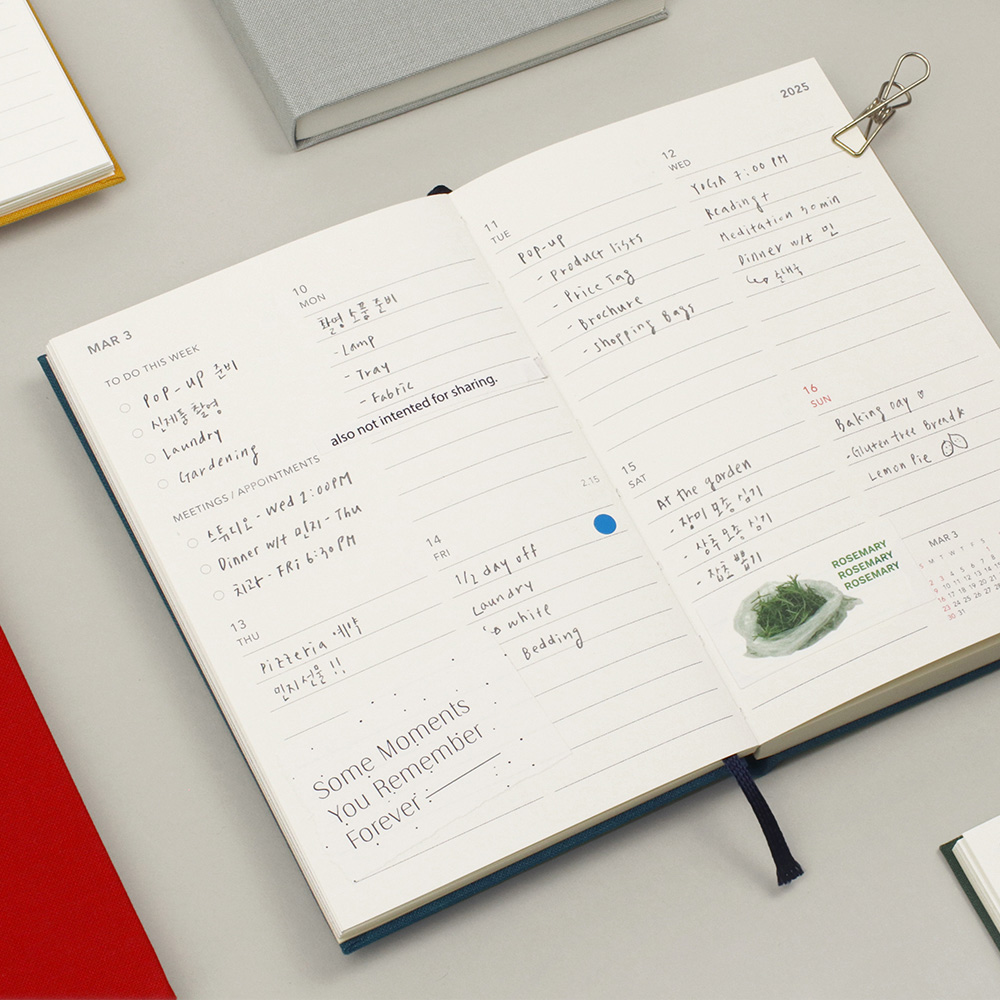 MAR 3
TO DO THIS WEEK
POP-UP 준비
신제품 촬영
Laundry
Gardening
MEETINGS / APPOINTMENTS
스튜디오 - Wed 2:00PM
Dinner w/t 민지 - Thu
치과 - FRI 6:30 PM
10
MON
촬영 소품 준비
- Lamp
- Tray
- Fabric
also not intented for sharing.
13
THU
Pizzeria 예약
민지선물 !!
Some Moments
You Remember
Forever
2.15
14
FRI
1/2 day off
Laundry
white
Bedding
2025
11
TUE
POP-UP
- Product lists
- Price Tag
- Brochure
- Shopping Bags
12
WED
YOGA 7:00 PM
Reading +
Meditation 30min
Dinner w/t 민
15
SAT
At the garden
- 장미 모종 심기
- 상추 모종 심기
- 잡초 뽑기
16
SUN
Baking day ♡
- Gluten free Bread
Lemon Pie
ROSEMARY
ROSEMARY
ROSEMARY
MAR 3
S M T W T F
2 3 4 5 6 7 8
9 10 11 12 13 14
16 17 18 19 20 21
23 24 25 26 27 28
30 31